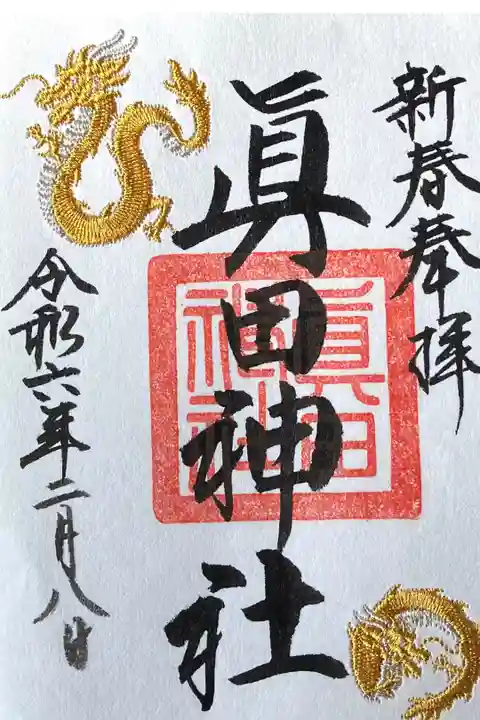 新春奉拝
眞田神社
眞田
神社
令和六年二月八日